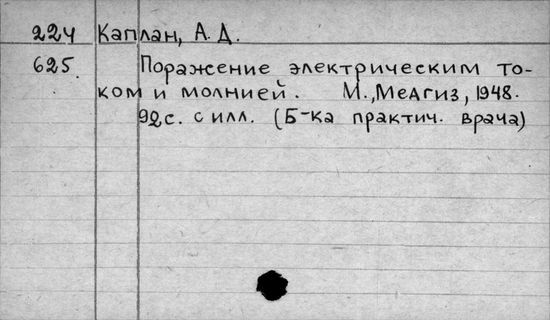 224 Каплан, А. Д.
625. Поражение электрическим то-
ком и молнией. М., Медгиз, 1948.
92с. с илл. (Б-ка практич. врача)